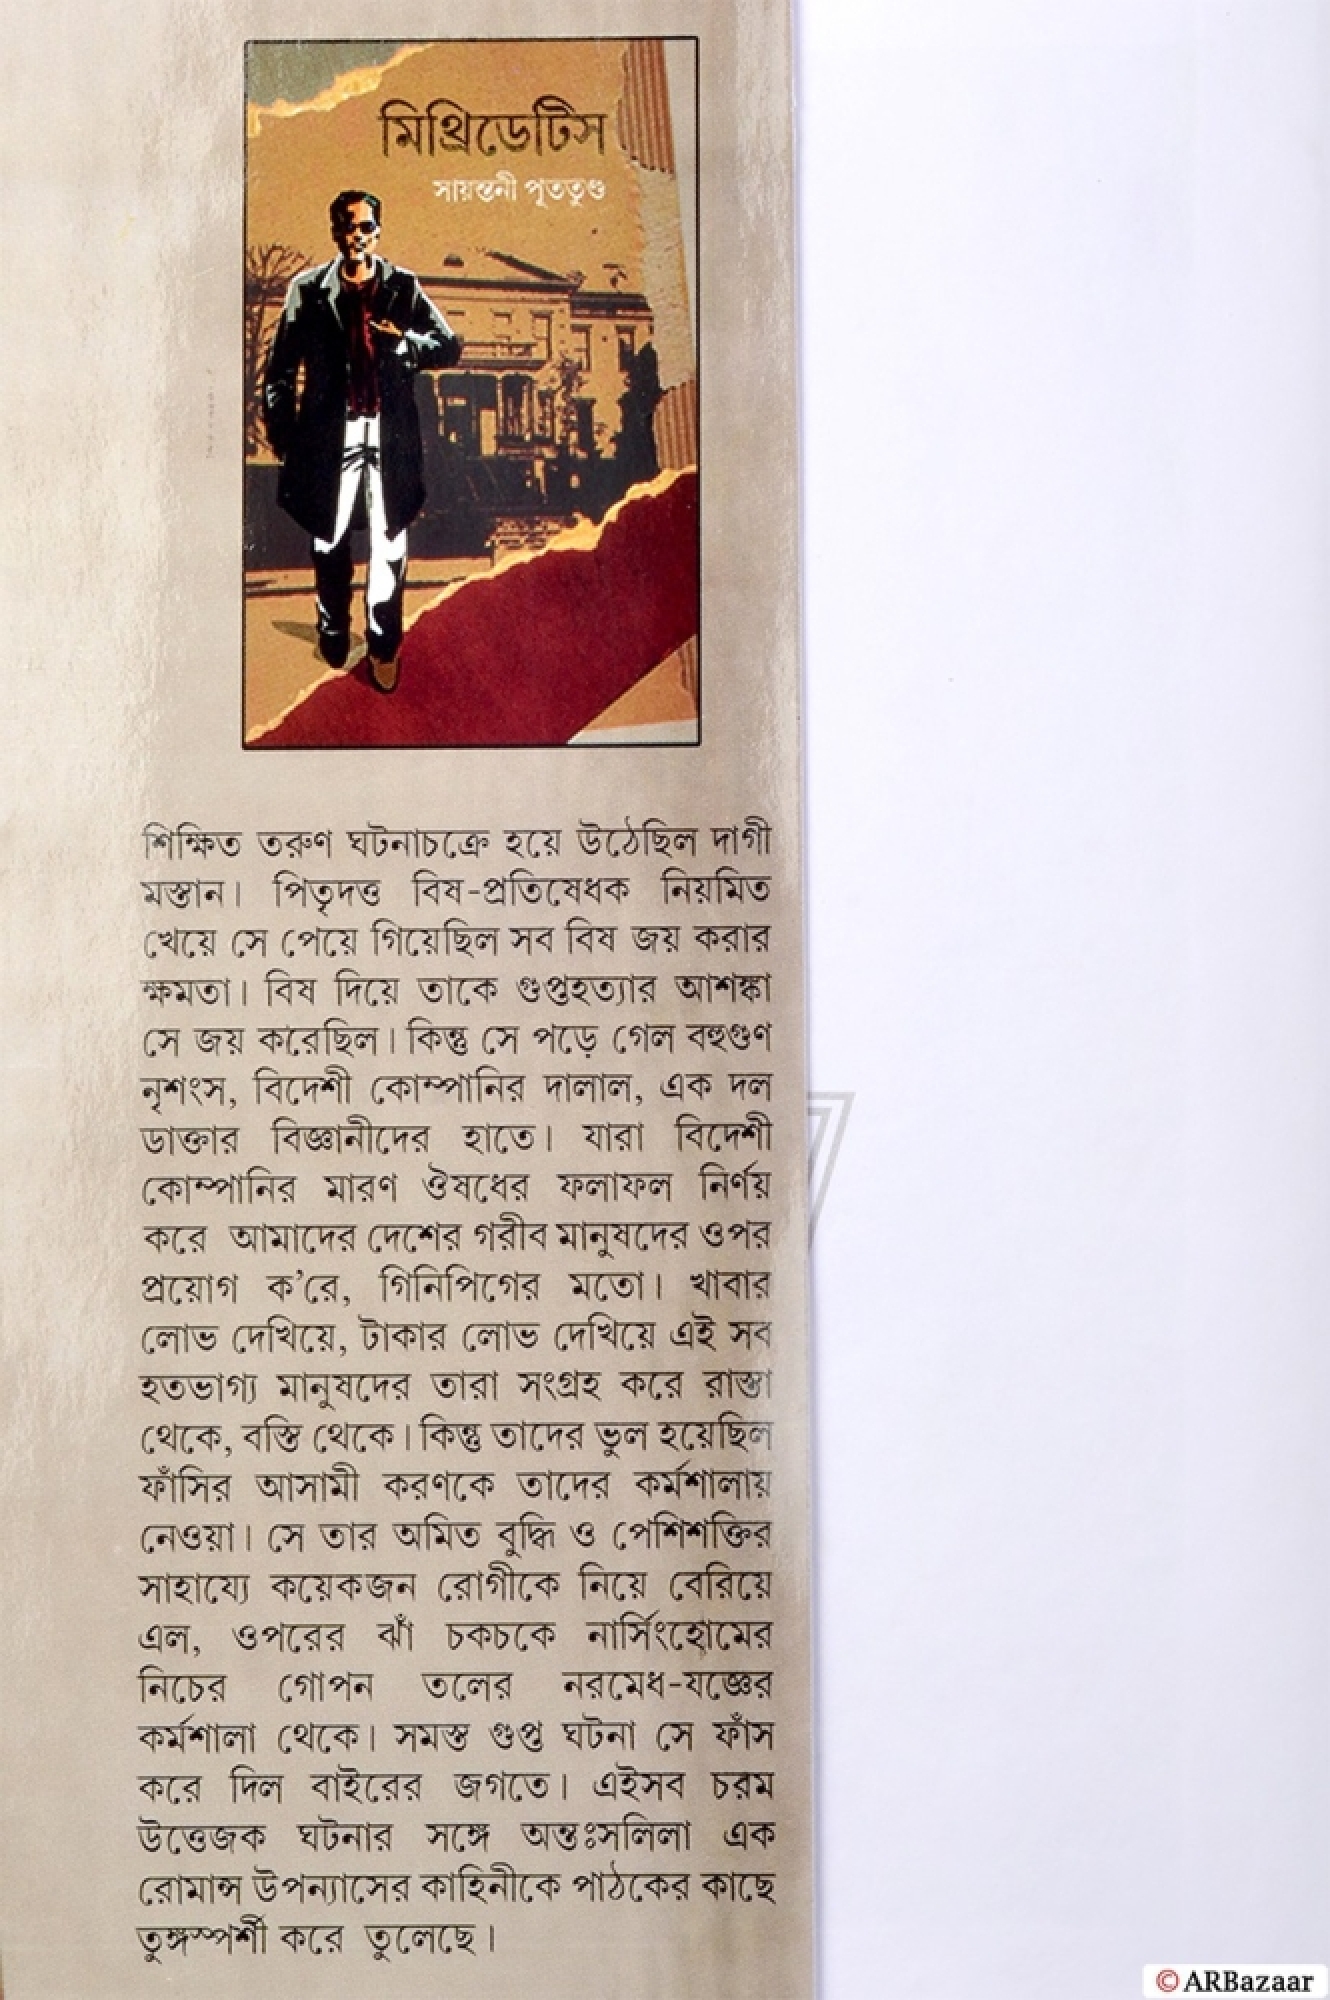 মিথ্রিডেটিস
সায়ন্তনী পূততুণ্ড
শিক্ষিত তরুণ ঘটনাচক্রে হয়ে উঠেছিল দাগী
মস্তান। পিতৃদত্ত বিষ-প্রতিষেধক নিয়মিত
খেয়ে সে পেয়ে গিয়েছিল সব বিষ জয় করার
ক্ষমতা। বিষ দিয়ে তাকে গুপ্তহত্যার আশঙ্কা
সে জয় করেছিল। কিন্তু সে পড়ে গেল বহুগুণ
নৃশংস, বিদেশী কোম্পানির দালাল, এক দল
ডাক্তার বিজ্ঞানীদের হাতে। যারা বিদেশী
কোম্পানির মারণ ঔষধের ফলাফল নির্ণয়
করে আমাদের দেশের গরীব মানুষদের ওপর
প্রয়োগ ক’রে, গিনিপিগের মতো। খাবার
লোভ দেখিয়ে, টাকার লোভ দেখিয়ে এই সব
হতভাগ্য মানুষদের তারা সংগ্রহ করে রাস্তা
থেকে, বস্তি থেকে। কিন্তু তাদের ভুল হয়েছিল
ফাঁসির আসামী করণকে তাদের কর্মশালায়
নেওয়া। সে তার অমিত বুদ্ধি ও পেশিশক্তির
সাহায্যে কয়েকজন রোগীকে নিয়ে বেরিয়ে
এল, ওপরের ঝাঁ চকচকে নার্সিংহোমের
নিচের গোপন তলের নরমেধ-যজ্ঞের
কর্মশালা থেকে। সমস্ত গুপ্ত ঘটনা সে ফাঁস
করে দিল বাইরের জগতে। এইসব চরম
উত্তেজক ঘটনার সঙ্গে অন্তঃসলিলা এক
রোমান্স উপন্যাসের কাহিনীকে পাঠকের কাছে
তুঙ্গস্পর্শী করে তুলেছে।
© ARBazaar